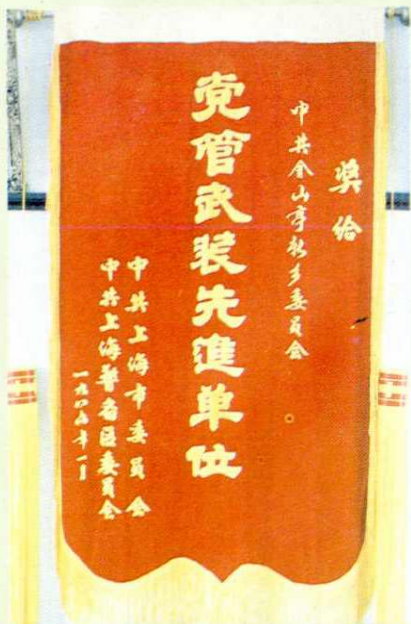 奖给
中共金山亭新乡委员会
党管武装先進单位
中共上海市委员会
中共上海警备区委员会